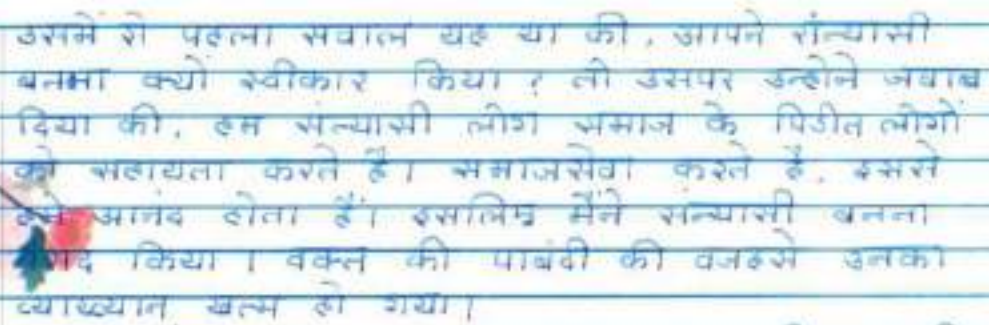 उसमें से पहला सवाल यह था की, आपने संन्यासी
बनना क्यों स्वीकार किया? तो उसपर उन्होंने जवाब
दिया की, हम संन्यासी लोग समाज के पिडीत लोगों
को सहायता करते है। समाजसेवा करते है, इससे
हमे आनंद होता हैं। इसलिए मैंने संन्यासी बनना
किया। वक्त की पाबंदी की वजहसे उनका
व्याख्यान खत्म हो गया।